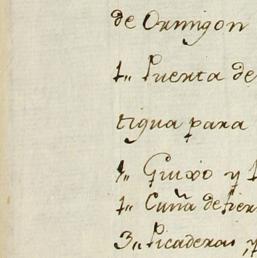 de Ormigon
1,, Puerta de
tigua para
1,, Guixo y
1,, Cuña de fier
3,, Picaderas y